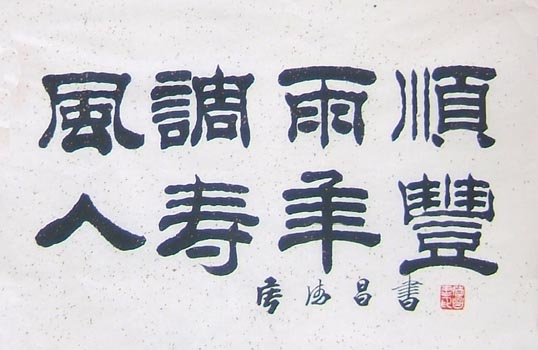 風調雨順
人寿年豐
昌書